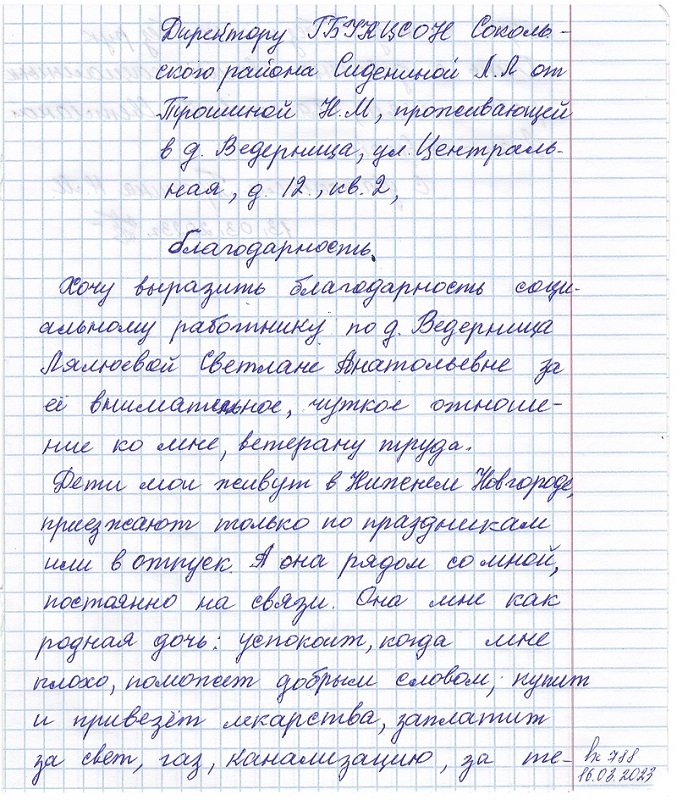 Директору ГБУ КЦСОН Соколь-
ского района Сидениной Л.Л от
Трошиной Н.М, проживающей
в д. Ведерница, ул. Централь-
ная, д. 12., кв. 2,
благодарность.
Хочу выразить благодарность соци-
альному работнику по д. Ведерница
Лялюевой Светлане Анатольевне за
её внимательное, чуткое отноше-
ние ко мне, ветерану труда.
Дети мои живут в Нижнем Новгороде,
приезжают только по праздникам
или в отпуск. А она рядом со мной,
постоянно на связи. Она мне как
родная дочь: успокоит, когда мне
плохо, поможет добрым словом, купит
и привезёт лекарства, заплатит
за свет, газ, канализацию, за те-
вх 788
16.03.2023